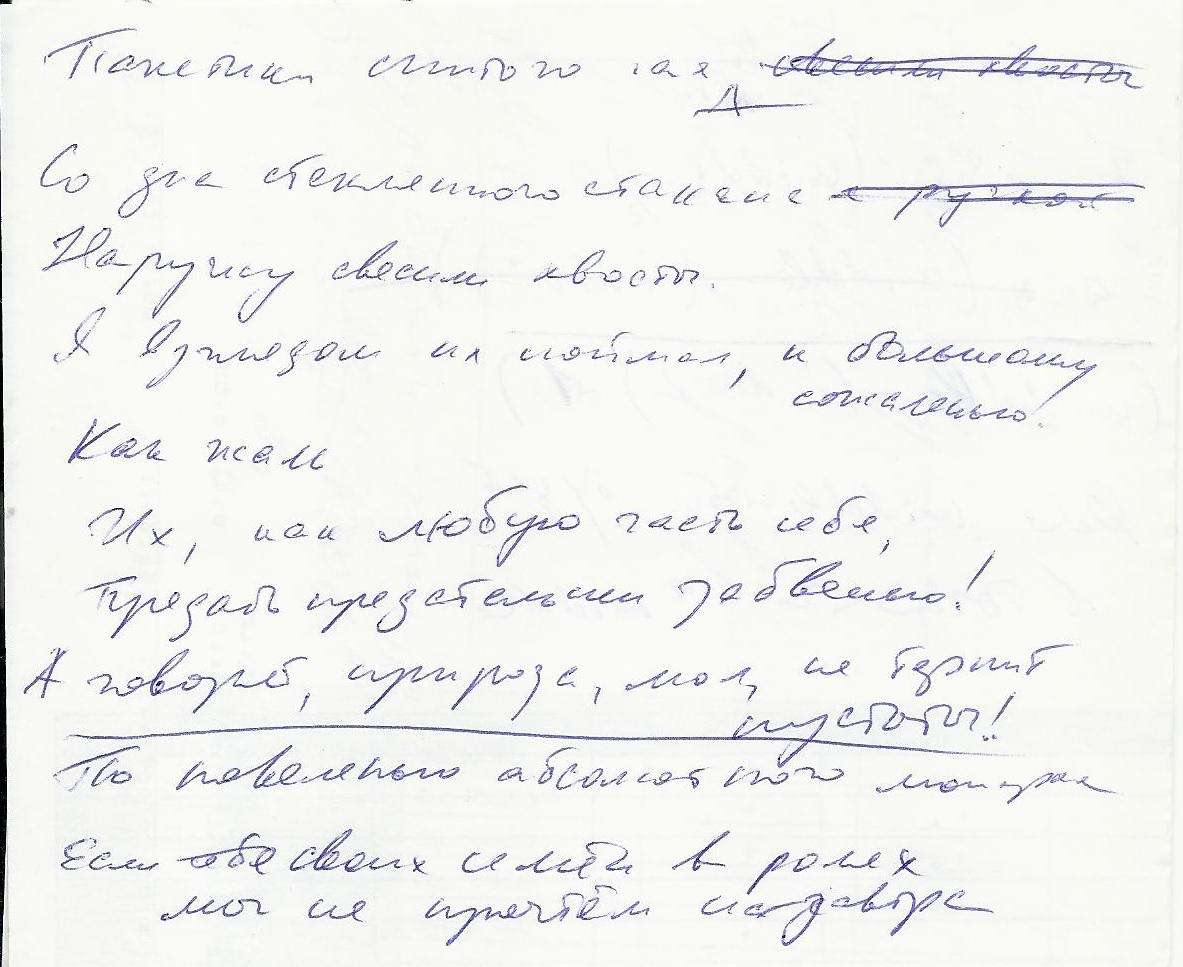 Пакетики спитого чая, ~~свесили хвосты~~
Д
Со дна стеклянного стакана ~~с ручкой~~
Наружу свесили хвосты.
Я взглядом их поймал, к большому
сожаленью!
Как жаль
Их, как любую часть себя,
Предать предательски забвенью!
А говорят, природа, мол, не терпит
пустоты!
По повеленью абсолютного монарха
Если ~~себя~~ своих имён в ролях
мы не прочтём назавтра